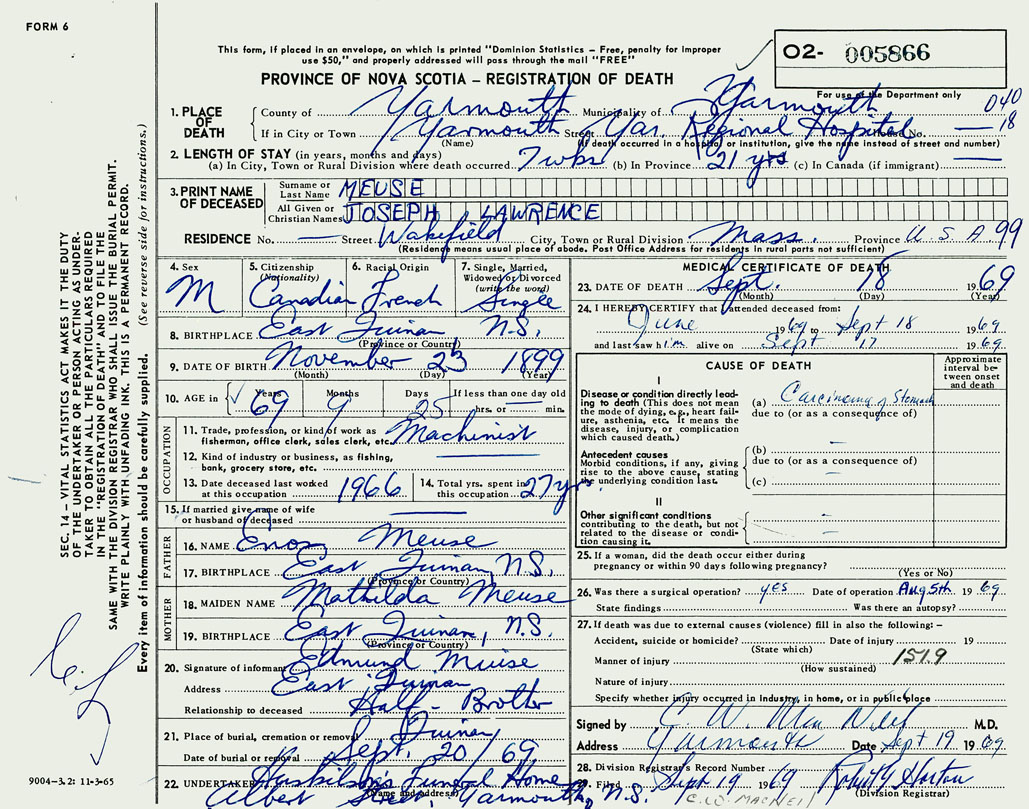 FORM 6
This form, if placed in an envelope, on which is printed "Dominion Statistics – Free, penalty for improper
use $50," and properly addressed will pass through the mail "FREE"
O2- 005866
PROVINCE OF NOVA SCOTIA – REGISTRATION OF DEATH
For use of the Department only
040
18
1. PLACE OF DEATH
County of Yarmouth Municipality of Yarmouth
If in City or Town Yarmouth Street Yar. Regional Hospital House No. —
(Name) (If death occurred in a hospital or institution, give the name instead of street and number)
2. LENGTH OF STAY (in years, months and days)
(a) In City, Town or Rural Division where death occurred 7 wks (b) In Province 21 yrs (c) In Canada (if immigrant) —
3. PRINT NAME OF DECEASED
Surname or Last Name MEUSE
All Given or Christian Names JOSEPH LAWRENCE
RESIDENCE No. — Street Wakefield City, Town or Rural Division Mass. Province U.S.A. 99
(Residence means usual place of abode. Post Office Address for residents in rural parts not sufficient)
4. Sex M
5. Citizenship (Nationality) Canadian
6. Racial Origin French
7. Single, Married, Widowed or Divorced (write the word) Single
8. BIRTHPLACE East Quinan N.S.
(Province or Country)
9. DATE OF BIRTH November 23 1899
(Month) (Day) (Year)
10. AGE in Years 69 Months 9 Days 25 If less than one day old
hrs. or — min.
OCCUPATION
11. Trade, profession, or kind of work as
fisherman, office clerk, sales clerk, etc. Machinist
12. Kind of industry or business, as fishing,
bank, grocery store, etc. —
13. Date deceased last worked
at this occupation 1966
14. Total yrs. spent in
this occupation 27 yrs.
15. If married give name of wife
or husband of deceased —
FATHER
16. NAME Enos Meuse
17. BIRTHPLACE East Quinan, N.S.
(Province or Country)
MOTHER
18. MAIDEN NAME Mathilda Meuse
19. BIRTHPLACE East Quinan, N.S.
(Province or Country)
20. Signature of informant Edmund Muise
Address East Quinan
Relationship to deceased Half-Brother
21. Place of burial, cremation or removal Quinan
Date of burial or removal Sept. 20/69
22. UNDERTAKER Funeral Home
(Name and address)
Albert Street, Yarmouth, N.S.
MEDICAL CERTIFICATE OF DEATH
23. DATE OF DEATH Sept. 18 1969
(Month) (Day) (Year)
24. I HEREBY CERTIFY that I attended deceased from:
June 1969 to Sept 18 1969
and last saw him alive on Sept 17 1969
CAUSE OF DEATH
Approximate interval between onset and death
I
Disease or condition directly leading
to death (This does not mean
the mode of dying, e.g., heart failure,
asthenia, etc. It means the
disease, injury, or complication
which caused death.)
(a) Carcinoma of Stomach
due to (or as a consequence of)
Antecedent causes
Morbid conditions, if any, giving
rise to the above cause, stating
the underlying condition last.
(b) —
due to (or as a consequence of)
(c) —
II
Other significant conditions
contributing to the death, but not
related to the disease or condition
causing it.
25. If a woman, did the death occur either during
pregnancy or within 90 days following pregnancy?
(Yes or No)
26. Was there a surgical operation? yes Date of operation Aug 5th 1969
State findings Was there an autopsy?
27. If death was due to external causes (violence) fill in also the following: –
Accident, suicide or homicide? Date of injury 19
(State which)
Manner of injury 151.9
(How sustained)
Nature of injury
Specify whether injury occurred in Industry, in home, or in public place
Signed by C. W. MacNeil M.D.
Address Yarmouth Date Sept 19 1969
28. Division Registrar's Record Number
Filed Sept 19 1969 Robert Horton
(Division Registrar)
C.W. MACNEIL
SEC. 14 – VITAL STATISTICS ACT MAKES IT THE DUTY
OF THE UNDERTAKER OR PERSON ACTING AS UNDER-
TAKER TO OBTAIN ALL THE PARTICULARS REQUIRED
IN THE "REGISTRATION OF DEATH" AND TO FILE THE
SAME WITH THE DIVISION REGISTRAR WHO SHALL ISSUE THE BURIAL PERMIT.
WRITE PLAINLY WITH UNFADING INK. THIS IS A PERMANENT RECORD.
Every item of information should be carefully supplied. (See reverse side for instructions.)
9004-3.2: 11-3-65